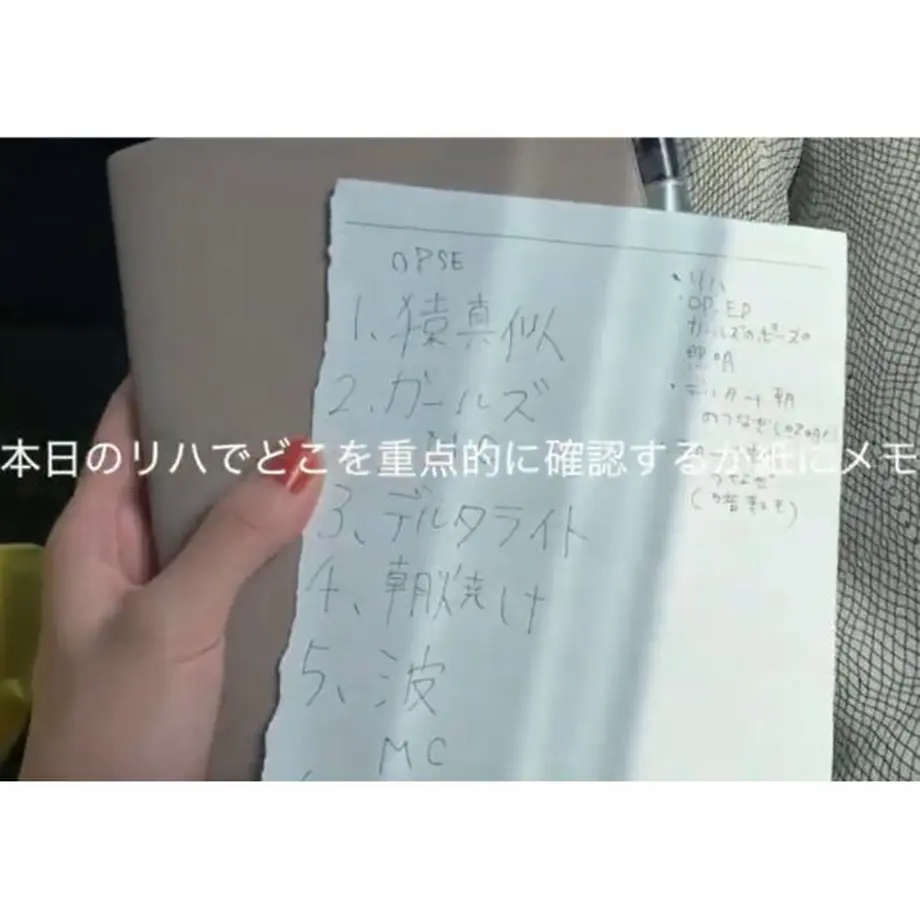 OPSE
1、猿真似
2、ガールズ
3、デルタライト
4、朝焼け
5、波
MC
・リハ
・OP、ED
ガールズのポーズの
照明
・デルタ→朝
のつなぎ
つなぎ
本日のリハでどこを重点的に確認するか紙にメモ